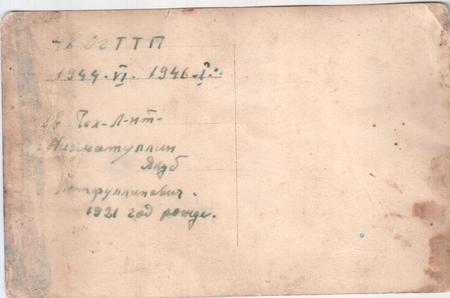 ОгТТП
1944.VI. 1946.I.
Тех-Л-нт-
Низматуллин
Якуб
Лотфуллинович.
1921 год рожде.